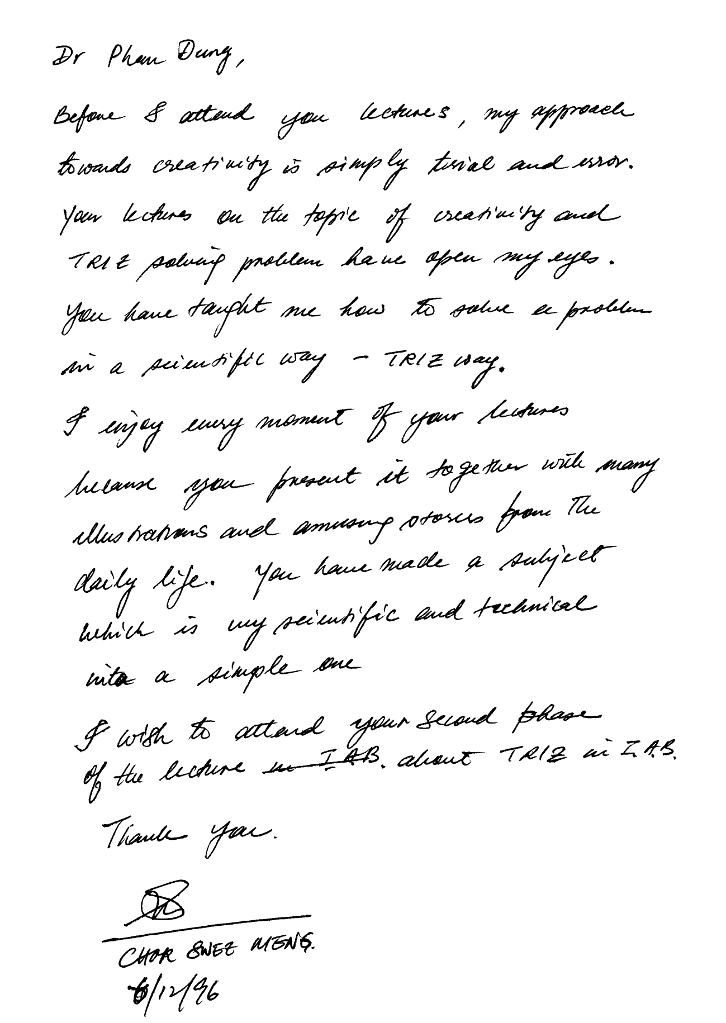 Dr Phan Dung,
Before I attend you lectures, my approach
towards creativity is simply terial and error.
Your lectures on the topic of creativity and
TRIZ solving problem have open my eyes.
You have taught me how to solve a problem
in a scientific way - TRIZ way.
I enjoy every moment of your lectures
because you present it together with many
illustrations and amusing stories from the
daily life. You have made a subject
which is very scientific and technical
into a simple one
I wish to attend your second phase
of the lecture in IAB. about TRIZ in I.A.B.
Thank you.
CHOR SWEE MENG.
6/12/96